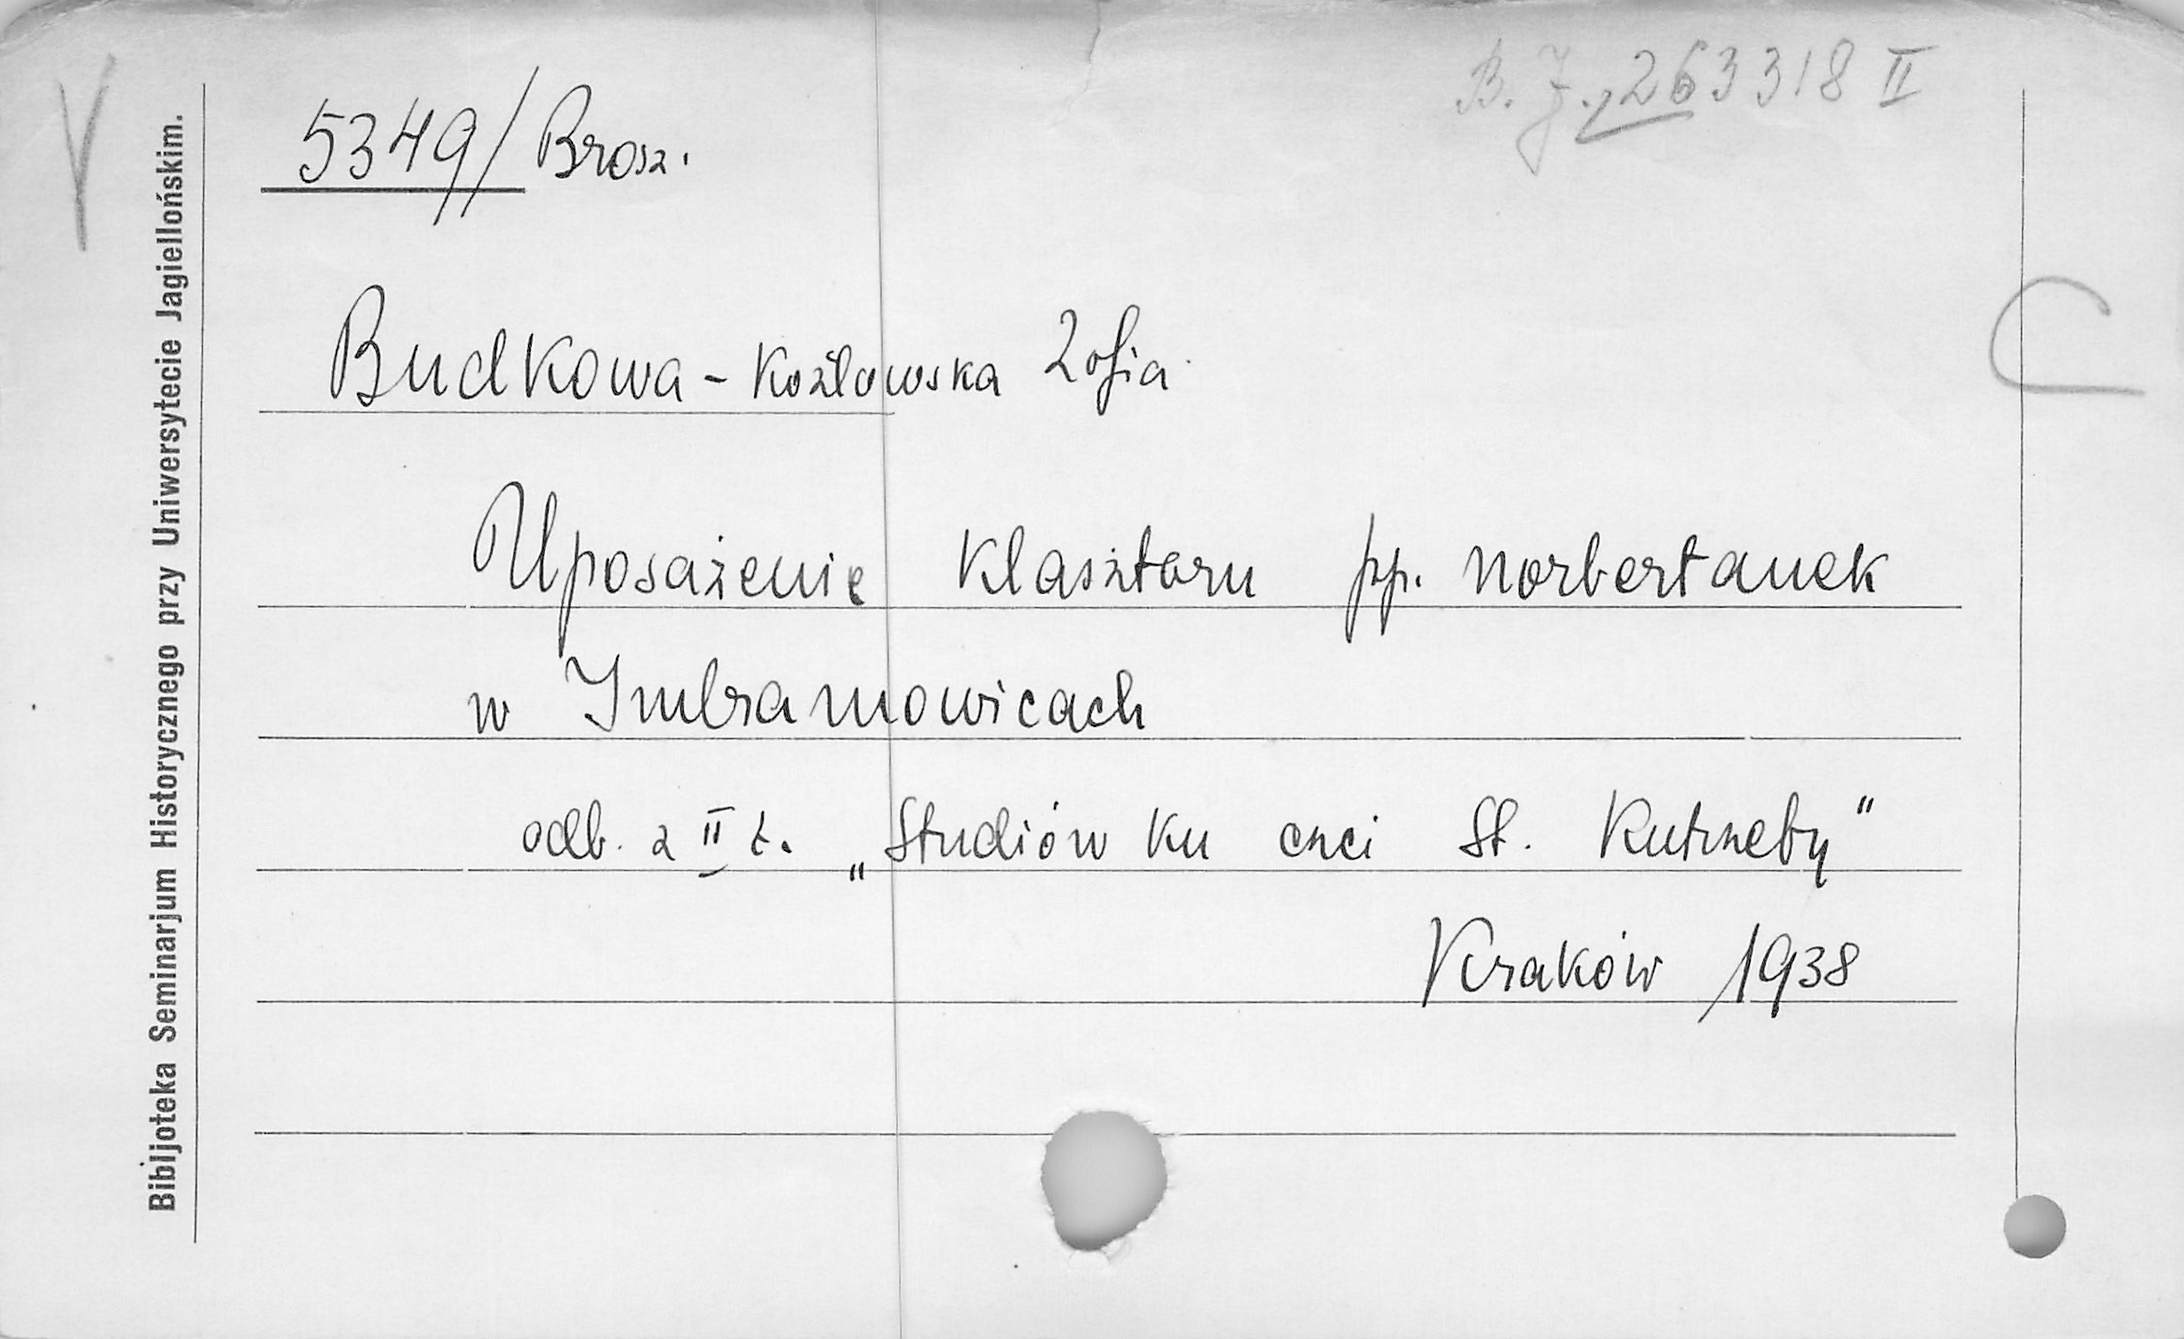 B. J. 263318 II
5349/Brosz.
Budkowa - Kozłowska Zofia
Uposażenie klasztoru pp. Norbertanek
w Imbramowicach
odb. z II t. „Studiów ku czci St. Kutrzeby"
Kraków 1938
Bibljoteka Seminarjum Historycznego przy Uniwersytecie Jagiellońskim.